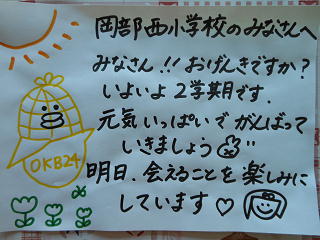 岡部西小学校のみなさんへ
みなさん!! おげんきですか?
いよいよ2学期です.
元気いっぱいでがんばって
いきましょう
明日.会えることを楽しみに
しています♡
OKB24